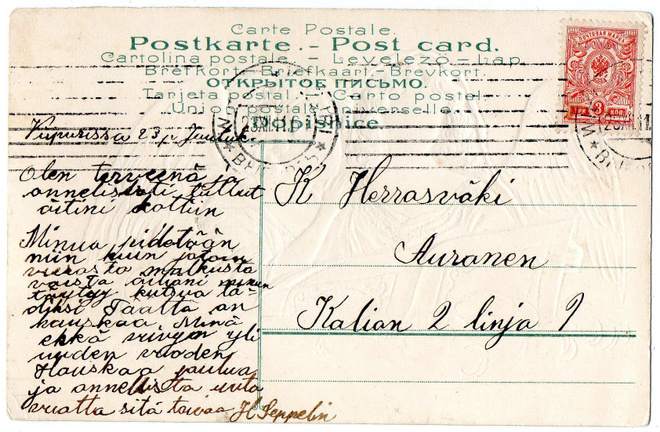 Carte Postale.
Postkarte. - Post card.
Cartolina postale. - Levelező-Lap.
Brefkort - Briefkaart - Brevkort.
ОТКРЫТОЕ ПИСЬМО.
Tarjeta postal. - Carto postal.
Union postale universelle.
ПОЧТОВАЯ МАРКА
3 КОП
Viipurissa 23 p Jouluk.
Olen terveenä ja
onnellisesti tullut
äitini kottiin
Minua pidetään
niin kuin jotain
vierasta matkusta
äitiäni minun
täytyy kutsua tä-
diksi Täältä on
hauskaa Minä
ehkä viivyn yli
uuden vuoden
Hauskaa joulua
ja onnellista uutta
vuotta sitä toivoo H Seppelin
K Herrasväki
Auranen
Kalion 2 linja 9